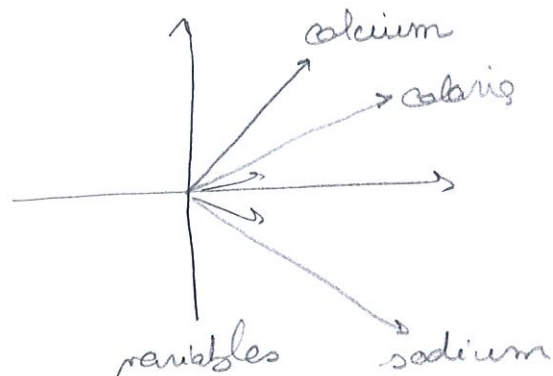 calcium
calorie
variables
sodium